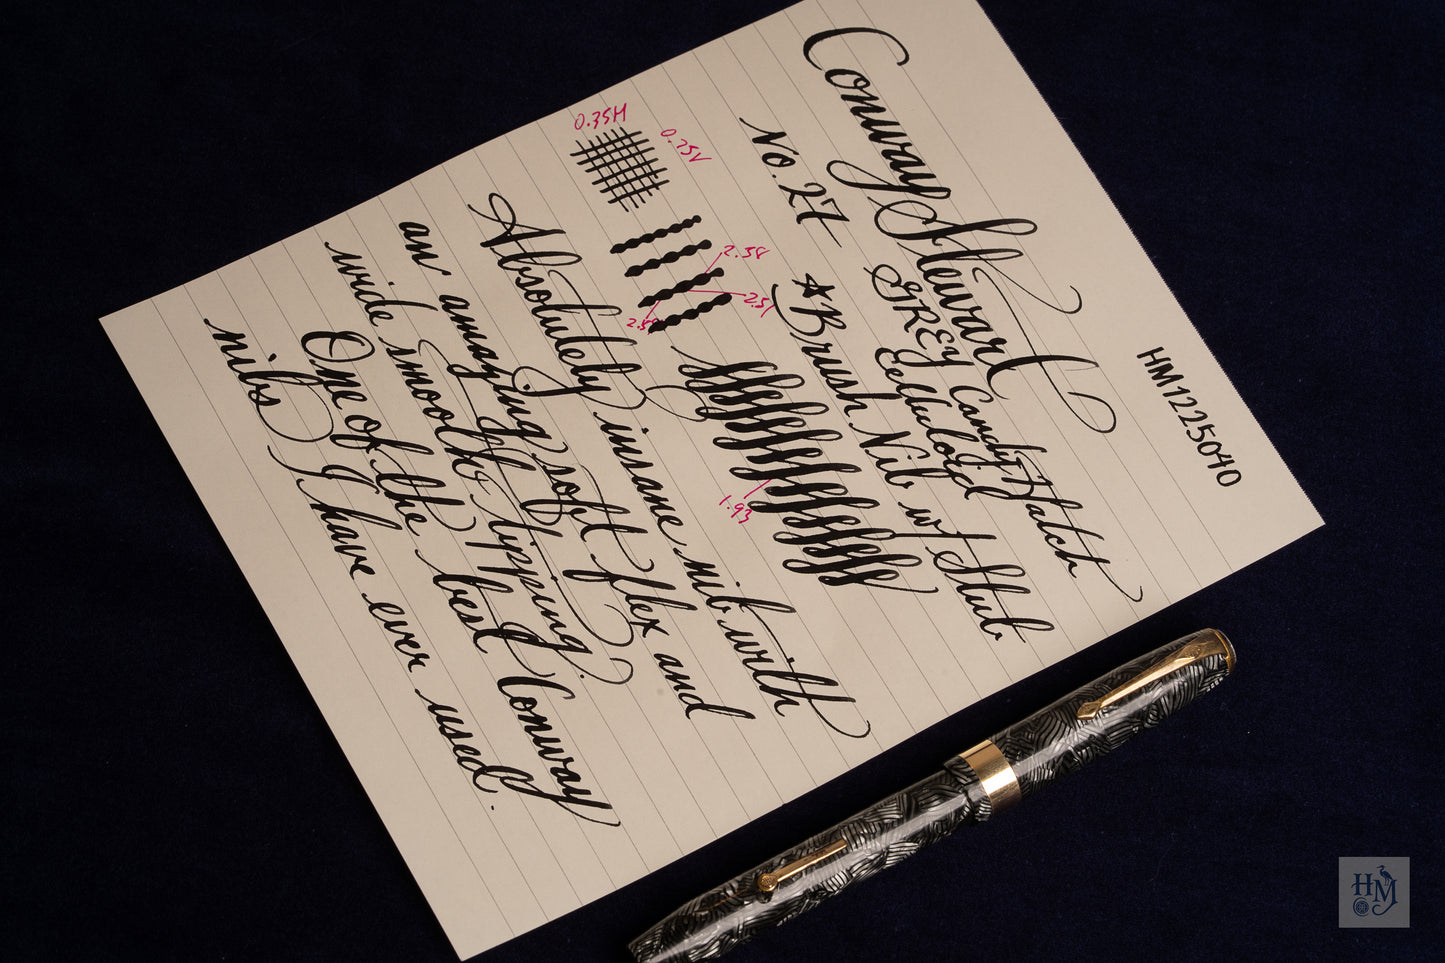 HM1225040
Conway Stewart
No. 27 GREY Candy Hatch
Celluloid
*Brush Nib w/ Stub
0.35H
0.75V
2.58
2.51
2.59
1.93
Absolutely insane nib with
an amazing soft flex and
wide smooth tipping.
One of the best Conway
nibs I have ever used.
HM